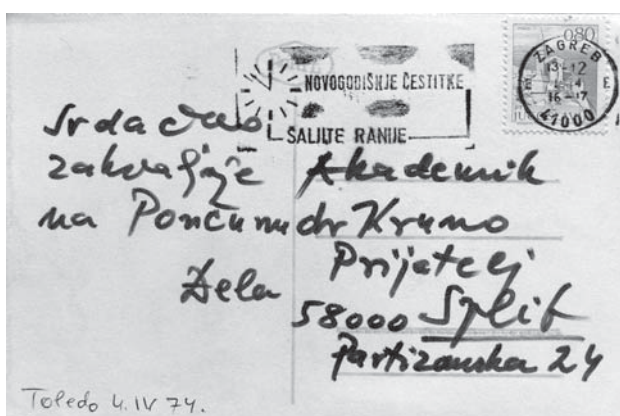 NOVOGODIŠNJE ČESTITKE
ŠALJITE RANIJE
0.80
ZAGREB
13-12
16-17
41000
Srdačno
zahvaljuje
na Pončunu
Akademik
dr Kruno
Prijatelj
58000 Split
Partizanska 24
Toledo 4. IV 74.